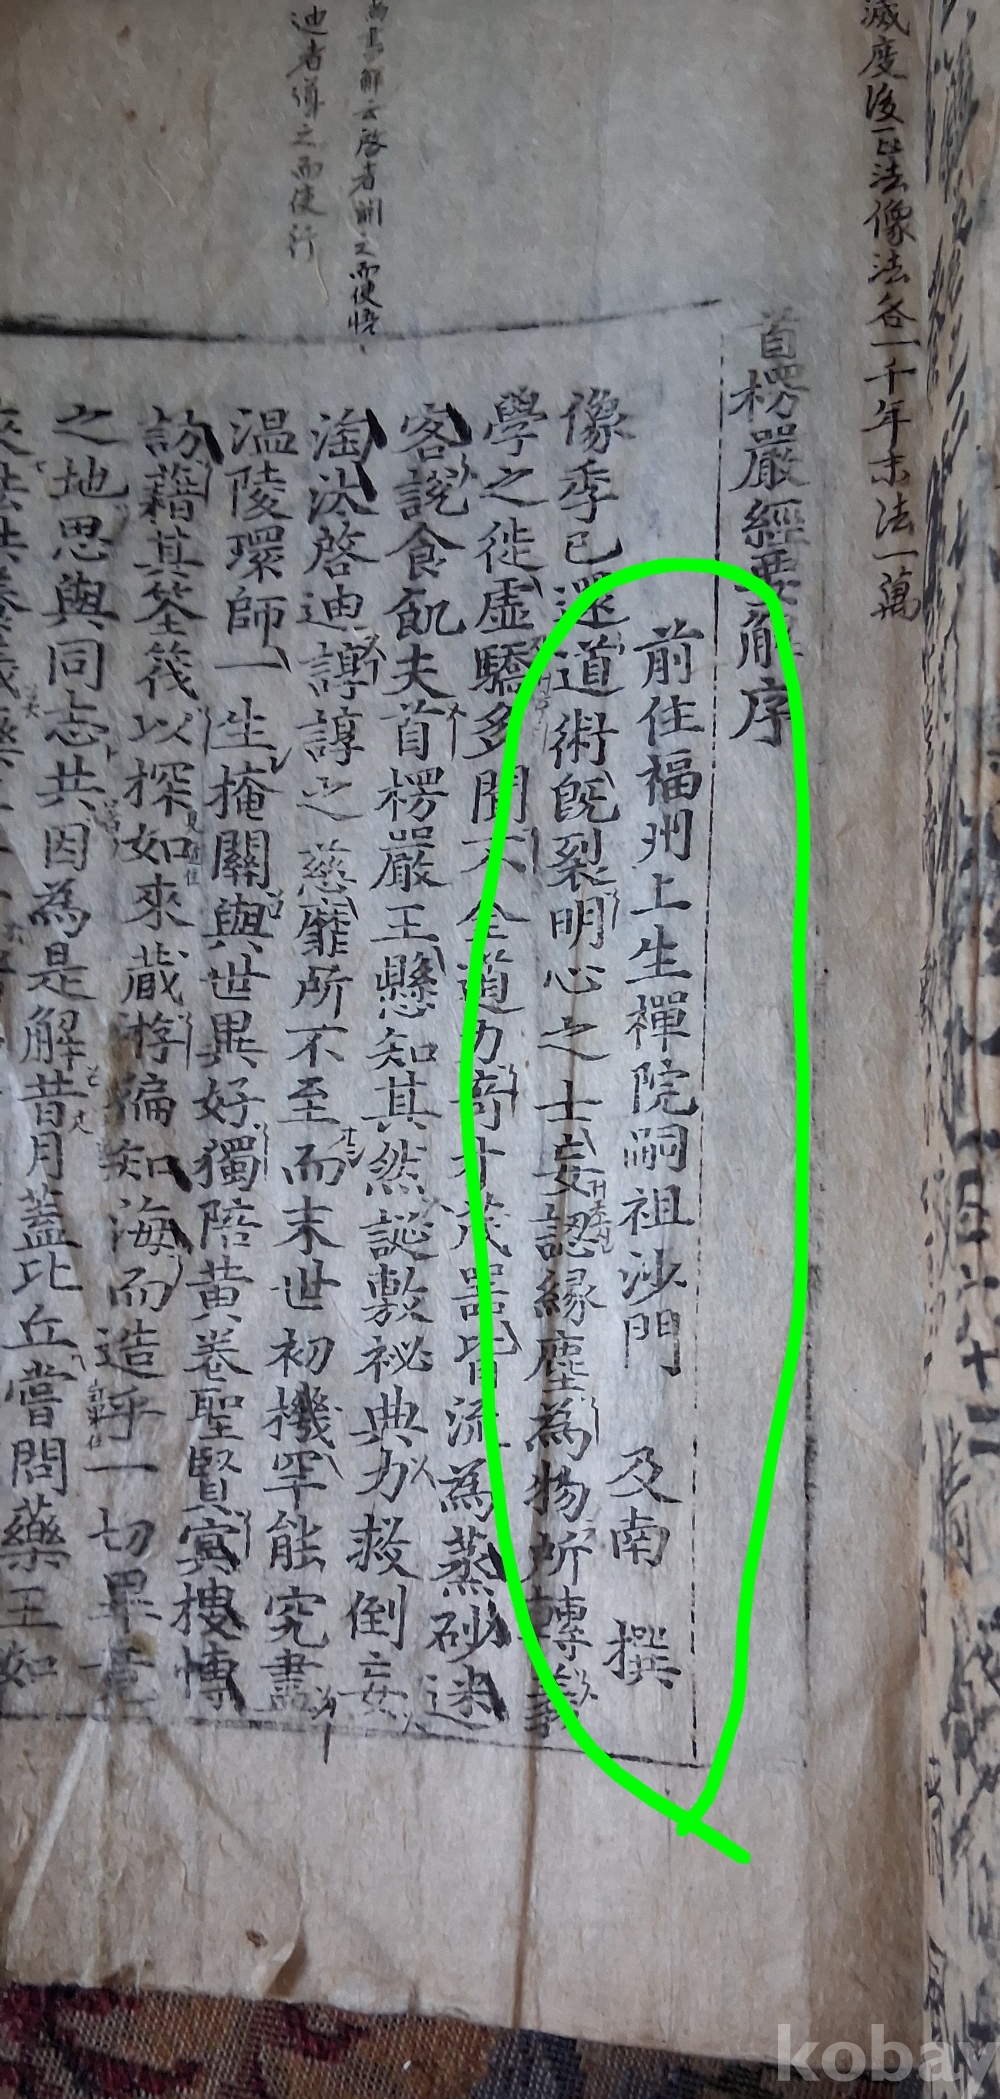 滅度後正法像法各一千年末法一萬
首楞嚴經要解序
前住福州上生禪院嗣祖沙門 及南 撰
像季已還道術旣裂明心之士妄認緣塵爲物所轉義
學之徒虛驕多聞不全道力奇才茂器皆流爲蒸砂迷
客說食飢夫首楞嚴王懸知其然誕敷祕典力救倒妄
淘汰啓迪諄諄之慈靡所不至而末世初機罕能究盡
溫陵環師一生掩關與世異好獨陪黃卷聖賢冥搜博
訪藉其筌筏以探如來藏游徧知海而造乎一切畢竟
之地思與同志共因爲是解昔月蓋比丘嘗問藥王如
啓者開之而使悟
迪者導之而使行
kobay